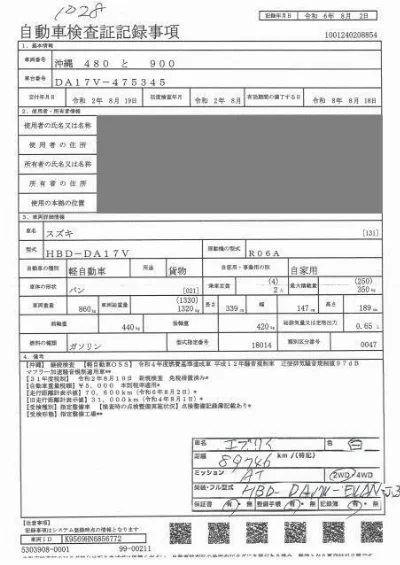 1028
記録年月日 令和 6年 8月 2日
自動車検査証記録事項
1001240208854
1. 基本情報
車両番号 沖縄 480 と 900
車台番号 DA17V-475345
交付年月日 令和 2年 8月19日 初度検査年月 令和 2年 8月 有効期間の満了する日 令和 8年 8月18日
2. 使用者・所有者情報
使用者の氏名又は名称
使用者の住所
所有者の氏名又は名称
所有者の住所
使用の本拠の位置
3. 車両詳細情報
車名 スズキ [131]
型式 HBD-DA17V 原動機の型式 R06A
自動車の種別 軽自動車 用途 貨物 自家用・事業用の別 自家用
車体の形状 バン [021] 乗車定員 (4) 2人 最大積載量 (250) 350kg
車両重量 860kg 車両総重量 (1330) 1320kg 長さ 339cm 幅 147cm 高さ 189cm
前軸重 440kg 後軸重 420kg 総排気量又は定格出力 0.65L
燃料の種類 ガソリン 型式指定番号 18014 類別区分番号 0047
4. 備考
[沖縄] 継続検査 [軽自動車OSS] 令和4年度燃費基準達成車 平成12年騒音規制車 近接排気騒音規制値97dB
マフラー加速騒音規制適用車**
[自動車重量税額] ¥5,000 本則税率適用*
[走行距離計表示値] 70,600km (令和6年8月2日)*
[旧走行距離計表示値] 31,000km (令和4年8月1日)*
[受検種別] 指定整備車 [検査時の点検整備実施状況] 点検整備記録簿記載あり*
[受検形態] 指定整備工場**
車名 エブリイ 色 白
距離 89746 km/(特記)
ミッション AT 2WD/4WD
保証書 有・無 整備手帳 有・無 記録簿 有・無
[注意事項]
車両ID K9569HN6856772
5303908-0001 99-00211